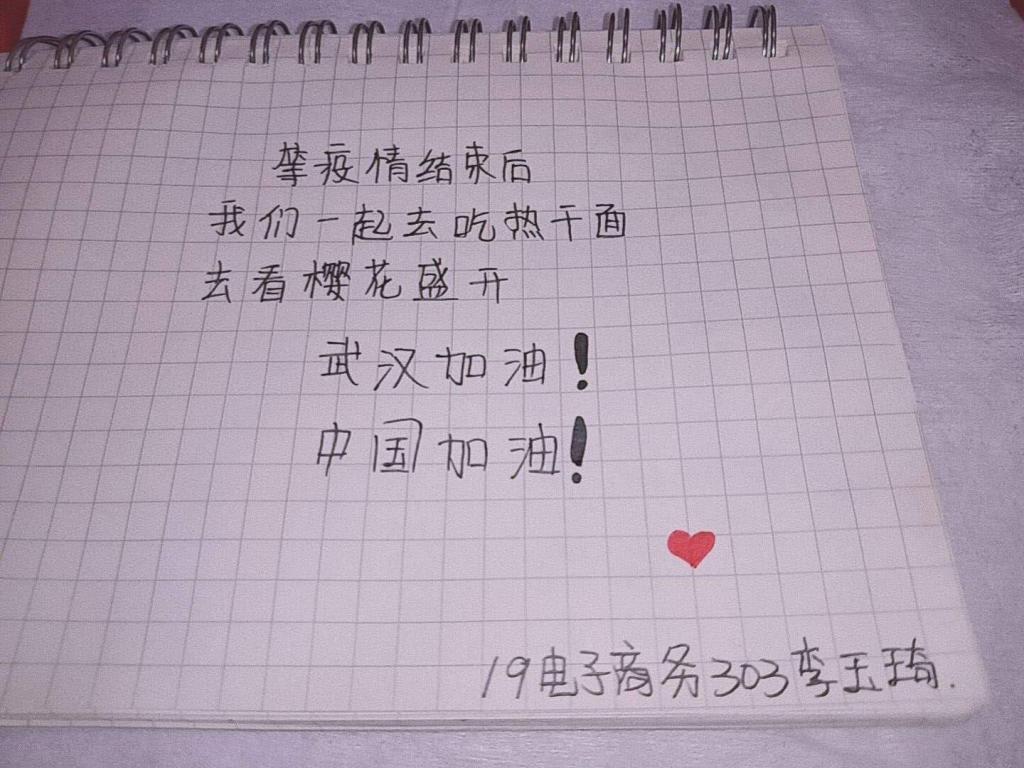 等疫情结束后
我们一起去吃热干面
去看樱花盛开
武汉加油！
中国加油！
19电子商务303李玉琦.